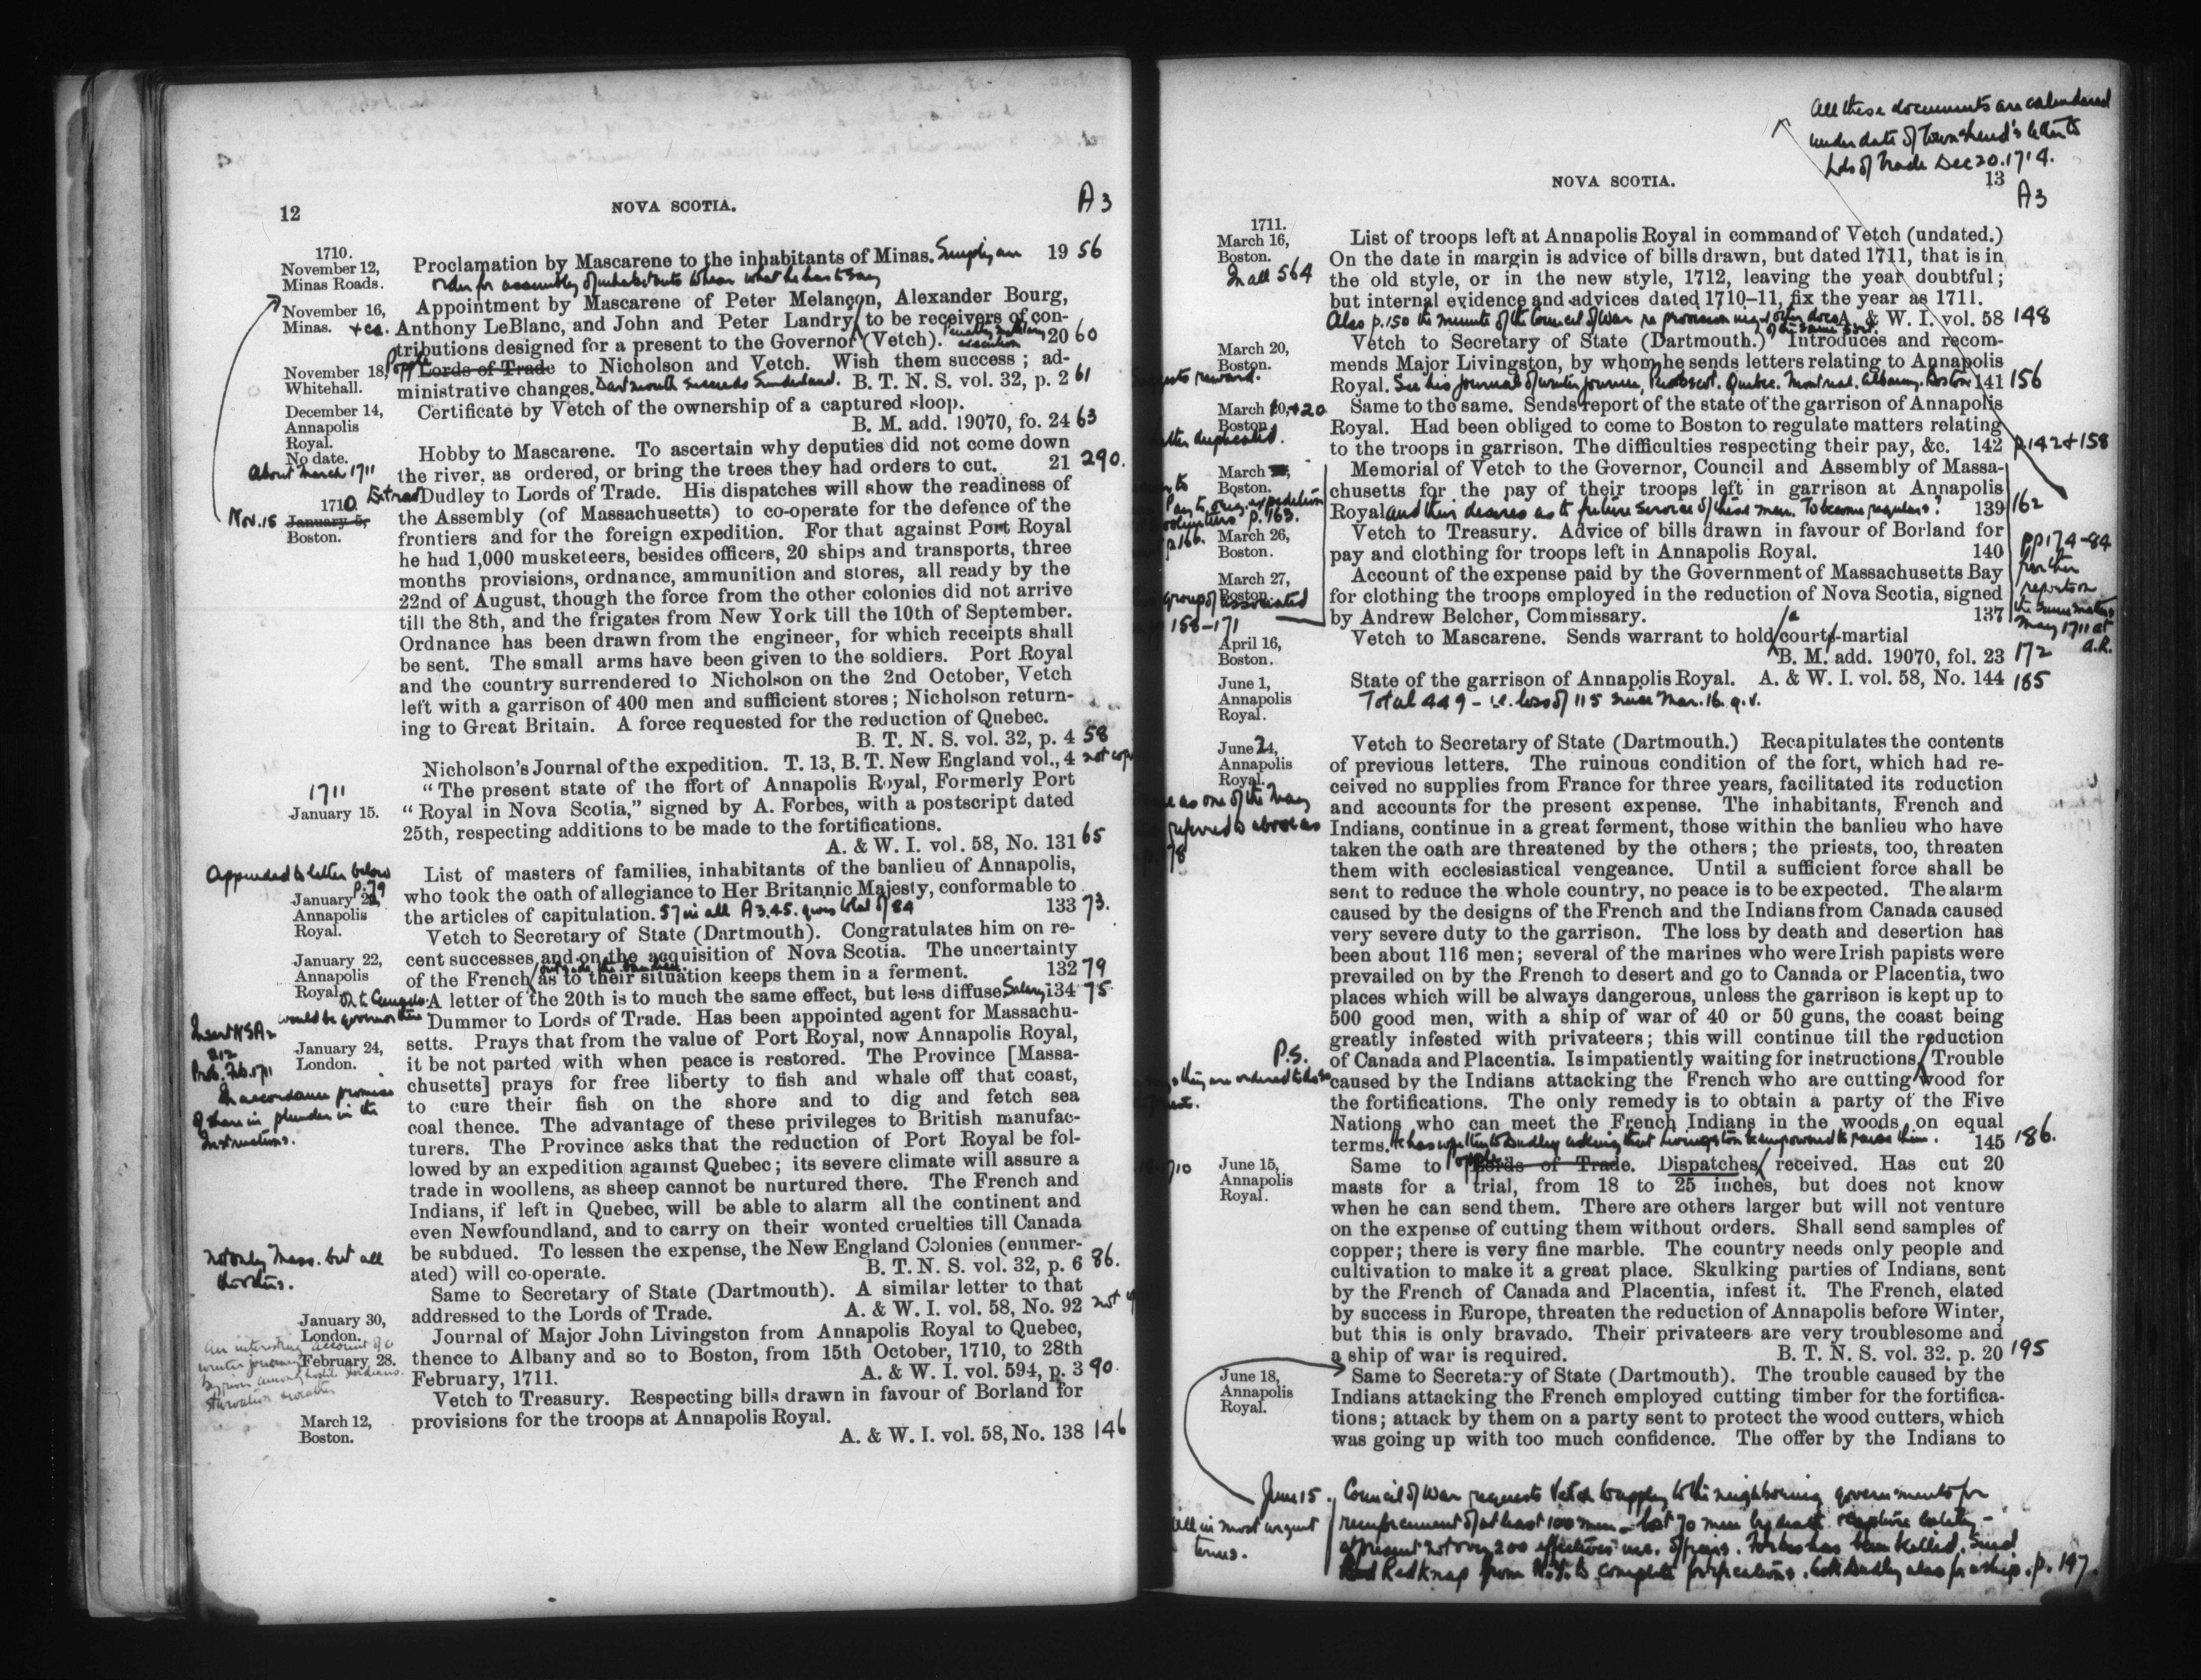 12
NOVA SCOTIA.
A3
1710.
November 12,
Minas Roads.
Proclamation by Mascarene to the inhabitants of Minas. Simply an 19 56
order for assembly of inhabitants to hear what he has to say
November 16,
Minas.
Appointment by Mascarene of Peter Melançon, Alexander Bourg,
Anthony LeBlanc, and John and Peter Landry to be receivers of con-
tributions designed for a present to the Governor (Vetch). 20 60
November 18,
Whitehall.
Lords of Trade to Nicholson and Vetch. Wish them success; ad-
ministrative changes. Dartmouth succeeds Sunderland. B. T. N. S. vol. 32, p. 2 61
December 14,
Annapolis
Royal.
Certificate by Vetch of the ownership of a captured sloop.
B. M. add. 19070, fo. 24 63
No date.
About March 1711
Hobby to Mascarene. To ascertain why deputies did not come down
the river, as ordered, or bring the trees they had orders to cut. 21 290.
1710
Nov. 15
January 5,
Boston.
Extract Dudley to Lords of Trade. His dispatches will show the readiness of
the Assembly (of Massachusetts) to co-operate for the defence of the
frontiers and for the foreign expedition. For that against Port Royal
he had 1,000 musketeers, besides officers, 20 ships and transports, three
months provisions, ordnance, ammunition and stores, all ready by the
22nd of August, though the force from the other colonies did not arrive
till the 8th, and the frigates from New York till the 10th of September.
Ordnance has been drawn from the engineer, for which receipts shall
be sent. The small arms have been given to the soldiers. Port Royal
and the country surrendered to Nicholson on the 2nd October, Vetch
left with a garrison of 400 men and sufficient stores; Nicholson return-
ing to Great Britain. A force requested for the reduction of Quebec.
B. T. N. S. vol. 32, p. 4 58
Nicholson's Journal of the expedition. T. 13, B. T. New England vol., 4 not
1711
January 15.
"The present state of the ffort of Annapolis Royal, Formerly Port
"Royal in Nova Scotia," signed by A. Forbes, with a postscript dated
25th, respecting additions to be made to the fortifications.
A. & W. I. vol. 58, No. 131 65
Appended to letter below
p. 79
January
Annapolis
Royal.
List of masters of families, inhabitants of the banlieu of Annapolis,
who took the oath of allegiance to Her Britannic Majesty, conformable to
the articles of capitulation. 57 in all A3.45. gives total of 84 133 73.
January 22,
Annapolis
Royal.
Vetch to Secretary of State (Dartmouth). Congratulates him on re-
cent successes and on the acquisition of Nova Scotia. The uncertainty
outside the banlieu
of the French as to their situation keeps them in a ferment. 132 79
A letter of the 20th is to much the same effect, but less diffuse Salary 134 75
would be governor there
January 24,
London.
Dummer to Lords of Trade. Has been appointed agent for Massachu-
setts. Prays that from the value of Port Royal, now Annapolis Royal,
it be not parted with when peace is restored. The Province [Massa-
chusetts] prays for free liberty to fish and whale off that coast,
to cure their fish on the shore and to dig and fetch sea
coal thence. The advantage of these privileges to British manufac-
turers. The Province asks that the reduction of Port Royal be fol-
lowed by an expedition against Quebec; its severe climate will assure a
trade in woollens, as sheep cannot be nurtured there. The French and
Indians, if left in Quebec, will be able to alarm all the continent and
even Newfoundland, and to carry on their wonted cruelties till Canada
be subdued. To lessen the expense, the New England Colonies (enumer-
ated) will co-operate. B. T. N. S. vol. 32, p. 6 86.
In accordance promise
of share in plunder in the
Instructions.
Not only Mass. but all
the others.
January 30,
London.
Same to Secretary of State (Dartmouth). A similar letter to that
addressed to the Lords of Trade. A. & W. I. vol. 58, No. 92 not
February 28.
An interesting account of a
winter journey
Journal of Major John Livingston from Annapolis Royal to Quebec,
thence to Albany and so to Boston, from 15th October, 1710, to 28th
February, 1711. A. & W. I. vol. 594, p. 3 90.
March 12,
Boston.
Vetch to Treasury. Respecting bills drawn in favour of Borland for
provisions for the troops at Annapolis Royal.
A. & W. I. vol. 58, No. 138 146
All these documents are calendared
under date of Townshend's letter to
Lds of Trade Dec 20. 1714.
NOVA SCOTIA.
13
A3
1711.
March 16,
Boston.
In all 564
List of troops left at Annapolis Royal in command of Vetch (undated.)
On the date in margin is advice of bills drawn, but dated 1711, that is in
the old style, or in the new style, 1712, leaving the year doubtful;
but internal evidence and advices dated 1710-11, fix the year as 1711.
Also p. 150 the minute of the Council of War re provision A. & W. I. vol. 58 148
March 20,
Boston.
Vetch to Secretary of State (Dartmouth.) Introduces and recom-
mends Major Livingston, by whom he sends letters relating to Annapolis
Royal. See his journal of winter journey, Penobscot, Quebec, Montreal, Albany, Boston 141 156
March 10, + 20
Boston.
letter duplicated.
Same to the same. Sends report of the state of the garrison of Annapolis
Royal. Had been obliged to come to Boston to regulate matters relating
to the troops in garrison. The difficulties respecting their pay, &c. 142 p. 142 + 158
March
Boston.
Memorial of Vetch to the Governor, Council and Assembly of Massa-
chusetts for the pay of their troops left in garrison at Annapolis
Royal and their desires as to future service of these men. To become regulars? 139 162
March 26,
Boston.
Vetch to Treasury. Advice of bills drawn in favour of Borland for
pay and clothing for troops left in Annapolis Royal. 140
pp 174-84
further
reports on
the same matters
May 1711 at
A.R.
March 27,
Boston.
group of associated
158-171
Account of the expense paid by the Government of Massachusetts Bay
for clothing the troops employed in the reduction of Nova Scotia, signed
by Andrew Belcher, Commissary. 137
April 16,
Boston.
Vetch to Mascarene. Sends warrant to hold a court-martial
B. M. add. 19070, fol. 23 172
June 1,
Annapolis
Royal.
State of the garrison of Annapolis Royal. A. & W. I. vol. 58, No. 144 185
Total 449 - i.e. loss of 115 since Mar. 16. q.v.
June 24,
Annapolis
Royal.
Vetch to Secretary of State (Dartmouth.) Recapitulates the contents
of previous letters. The ruinous condition of the fort, which had re-
ceived no supplies from France for three years, facilitated its reduction
and accounts for the present expense. The inhabitants, French and
Indians, continue in a great ferment, those within the banlieu who have
taken the oath are threatened by the others; the priests, too, threaten
them with ecclesiastical vengeance. Until a sufficient force shall be
sent to reduce the whole country, no peace is to be expected. The alarm
caused by the designs of the French and the Indians from Canada caused
very severe duty to the garrison. The loss by death and desertion has
been about 116 men; several of the marines who were Irish papists were
prevailed on by the French to desert and go to Canada or Placentia, two
places which will be always dangerous, unless the garrison is kept up to
500 good men, with a ship of war of 40 or 50 guns, the coast being
greatly infested with privateers; this will continue till the reduction
of Canada and Placentia. Is impatiently waiting for instructions Trouble
P.S.
caused by the Indians attacking the French who are cutting wood for
the fortifications. The only remedy is to obtain a party of the Five
Nations who can meet the French Indians in the woods on equal
terms. He has written to Dudley asking that Livingston be empowered to raise them. 145 186.
June 15,
Annapolis
Royal.
Same to Lords of Trade. Dispatches received. Has cut 20
masts for a trial, from 18 to 25 inches, but does not know
when he can send them. There are others larger but will not venture
on the expense of cutting them without orders. Shall send samples of
copper; there is very fine marble. The country needs only people and
cultivation to make it a great place. Skulking parties of Indians, sent
by the French of Canada and Placentia, infest it. The French, elated
by success in Europe, threaten the reduction of Annapolis before Winter,
but this is only bravado. Their privateers are very troublesome and
a ship of war is required. B. T. N. S. vol. 32. p. 20 195
June 18,
Annapolis
Royal.
Same to Secretary of State (Dartmouth). The trouble caused by the
Indians attacking the French employed cutting timber for the fortifica-
tions; attack by them on a party sent to protect the wood cutters, which
was going up with too much confidence. The offer by the Indians to
June 15.
all in most urgent
terms.
Council of War requests Vetch to apply to the neighboring governments for
reinforcement of at least 100 men - lost 70 men by death & capture lately -
at present not over 200 effectives inc. officers. Forbes has been killed. Send
Redknap from N.Y. to complete fortifications. Ask Dudley also for a ship. p. 197